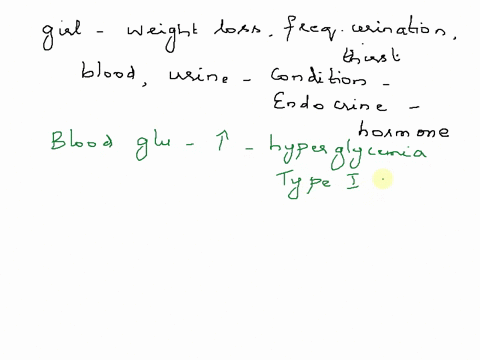 girl - weight loss, freq. urination,
thirst
blood, urine - Condition -
Endocrine -
hormone
Blood glu - ↑ - hyperglycemia
Type I